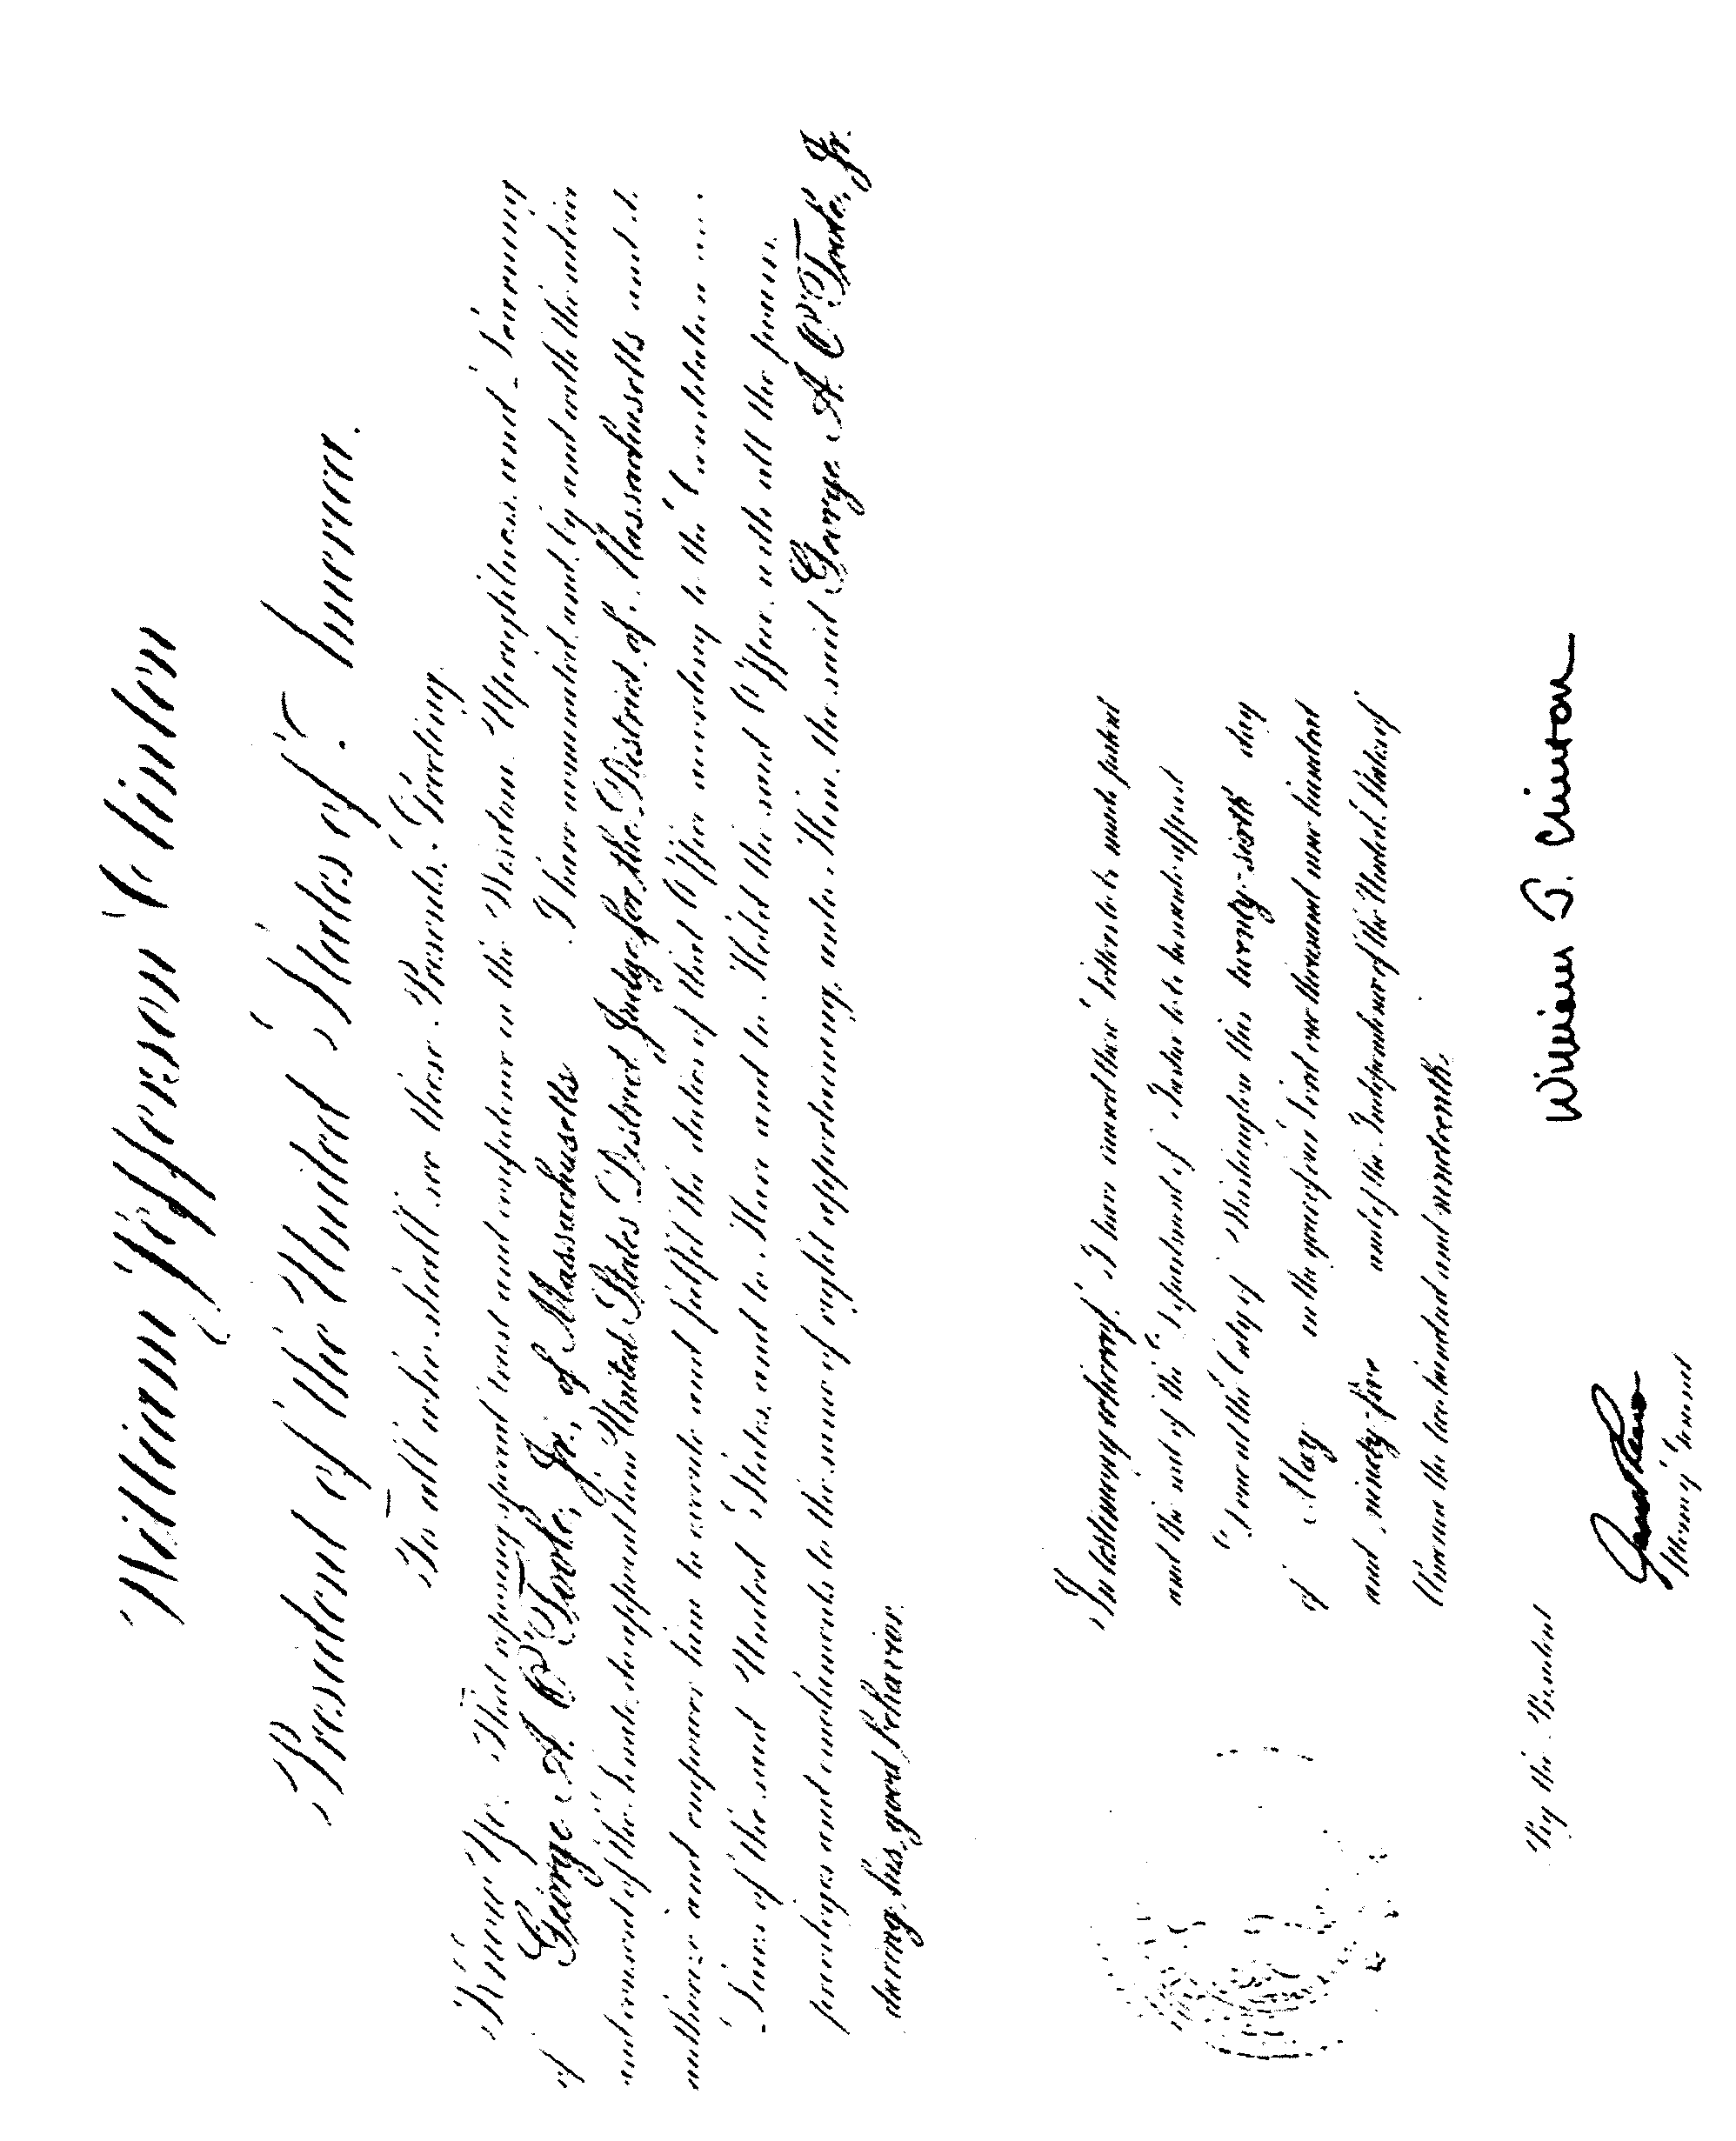 William Jefferson Clinton
President of the United States of America.
To all who shall see these Presents, Greeting:
Know Ye: That reposing special trust and confidence in the Wisdom, Uprightness, and Learning
of George A. O'Toole, Jr., of Massachusetts I have nominated, and, by and with the advice
and consent of the Senate, do appoint him United States District Judge for the District of Massachusetts and do
authorize and empower him to execute and fulfil the duties of that Office according to the Constitution and
Laws of the said United States, and to Have and to Hold the said Office, with all the powers,
privileges and emoluments to the same of right appertaining, unto Him, the said George A. O'Toole, Jr.
during his good behavior.
In testimony whereof, I have caused these letters to be made patent
and the seal of the Department of Justice to be hereunto affixed
Done at the City of Washington this twenty-sixth day
of May in the year of our Lord one thousand nine hundred
and ninety-five and of the Independence of the United States of
America the two hundred and nineteenth.
William J. Clinton
By the President
Janet Reno
Attorney General